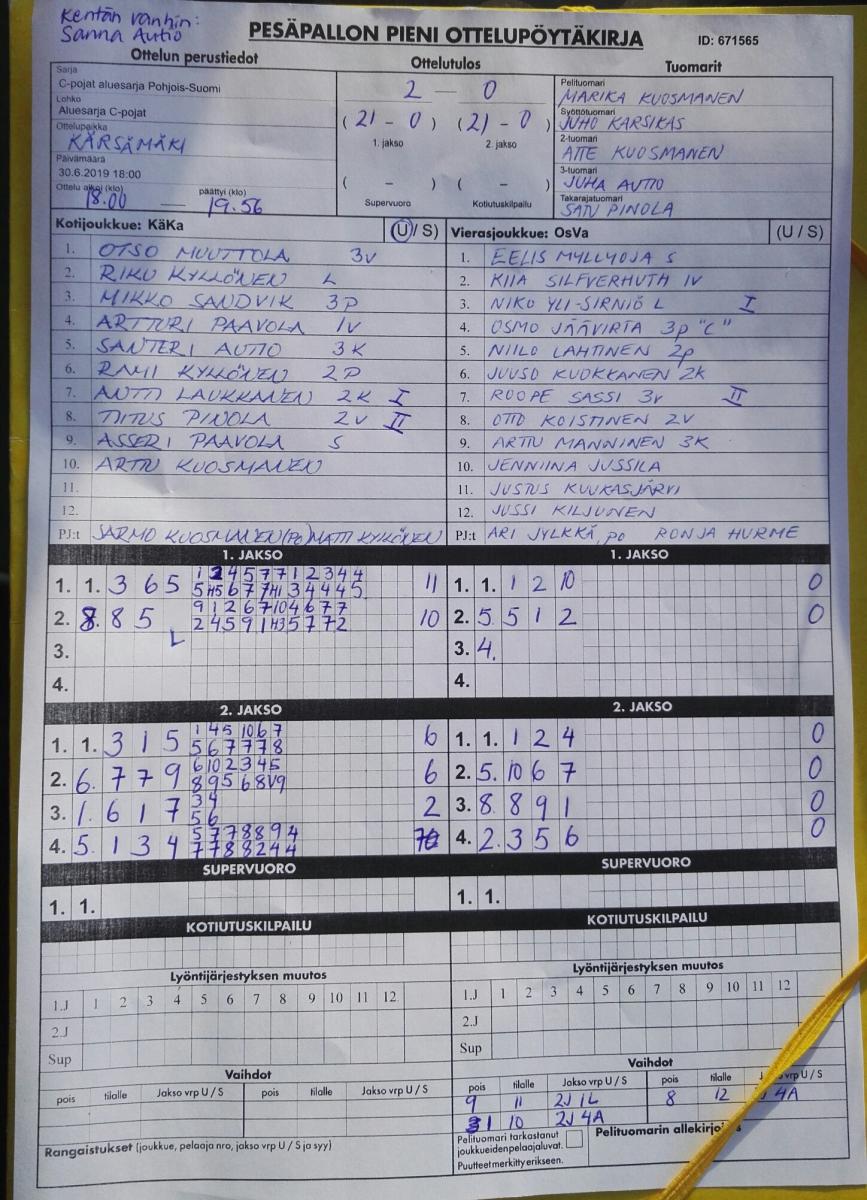 Kentän vanhin:
Sanna Autio
PESÄPALLON PIENI OTTELUPÖYTÄKIRJA
ID: 671565
Ottelun perustiedot
Sarja
C-pojat aluesarja Pohjois-Suomi
Lohko
Aluesarja C-pojat
Ottelupaikka
KÄRSÄMÄKI
Päivämäärä
30.6.2019 18:00
Ottelu alkoi (klo) päättyi (klo)
18.00 — 19.56
Ottelutulos
2 — 0
(21 - 0) (21 - 0)
1. jakso 2. jakso
( - ) ( - )
Supervuoro Kotiutuskilpailu
Tuomarit
Pelituomari
MARIKA KUOSMANEN
Syöttötuomari
JUHO KARSIKAS
2-tuomari
ATTE KUOSMANEN
3-tuomari
JUHA AUTIO
Takarajatuomari
SATU PINOLA
Kotijoukkue: KäKa (U / S)
1. OTSO MUUTTOLA 3V
2. RIKU KYLLÖNEN L
3. MIKKO SANDVIK 3P
4. ARTTURI PAAVOLA 1V
5. SANTERI AUTIO 3K
6. RAMI KYLLÖNEN 2P
7. ANTTI LAUKKANEN 2K I
8. TIITUS PINOLA 2V II
9. ASSERI PAAVOLA S
10. ARTTU KUOSMANEN
11.
12.
PJ:t JARMO KUOSMANEN (PO) MATTI KYLLÖNEN
Vierasjoukkue: OsVa (U / S)
1. EELIS MYLLYOJA S
2. KIIA SILFVERHUTH 1V
3. NIKO YLI-SIRNIÖ L I
4. OSMO JÄÄVIRTA 3P "C"
5. NIILO LAHTINEN 2P
6. JUUSO KUOKKANEN 2K
7. ROOPE SASSI 3V II
8. OTTO KOISTINEN 2V
9. ARTTU MANNINEN 3K
10. JENNIINA JUSSILA
11. JUSTUS KUUKASJÄRVI
12. JUSSI KILJUNEN
PJ:t ARI JYLKKÄ, PO RONJA HURME
1. JAKSO
1. 1. 3 6 5 11
2. 8. 8 5 10
L
3.
4.
1. JAKSO
1. 1. 1 2 10 0
2. 5. 5 1 2 0
3. 4.
4.
2. JAKSO
1. 1. 3 1 5 6
2. 6. 7 7 9 6
3. 1. 6 1 7 3 4 2
5 6
4. 5. 1 3 4 5 7 7 8 8 9 4
7 7 8 8 2 4 4
2. JAKSO
1. 1. 1 2 4 0
2. 5. 10 6 7 0
3. 8. 8 9 1 0
4. 2. 3 5 6 0
SUPERVUORO
1. 1.
SUPERVUORO
1. 1.
KOTIUTUSKILPAILU
KOTIUTUSKILPAILU
Lyöntijärjestyksen muutos
1.J 1 2 3 4 5 6 7 8 9 10 11 12
2.J
Sup
Lyöntijärjestyksen muutos
1.J 1 2 3 4 5 6 7 8 9 10 11 12
2.J
Sup
Vaihdot
pois tilalle Jakso vrp U / S pois tilalle Jakso vrp U / S
Rangaistukset (joukkue, pelaaja nro, jakso vrp U / S ja syy)
Vaihdot
pois tilalle Jakso vrp U / S pois tilalle vrp U / S
9 11 2J 1L 8 12 J 4A
1 10 2J 4A
Pelituomari tarkastanut
joukkueiden pelaajaluvat.
Puutteet merkitty erikseen.
Pelituomarin